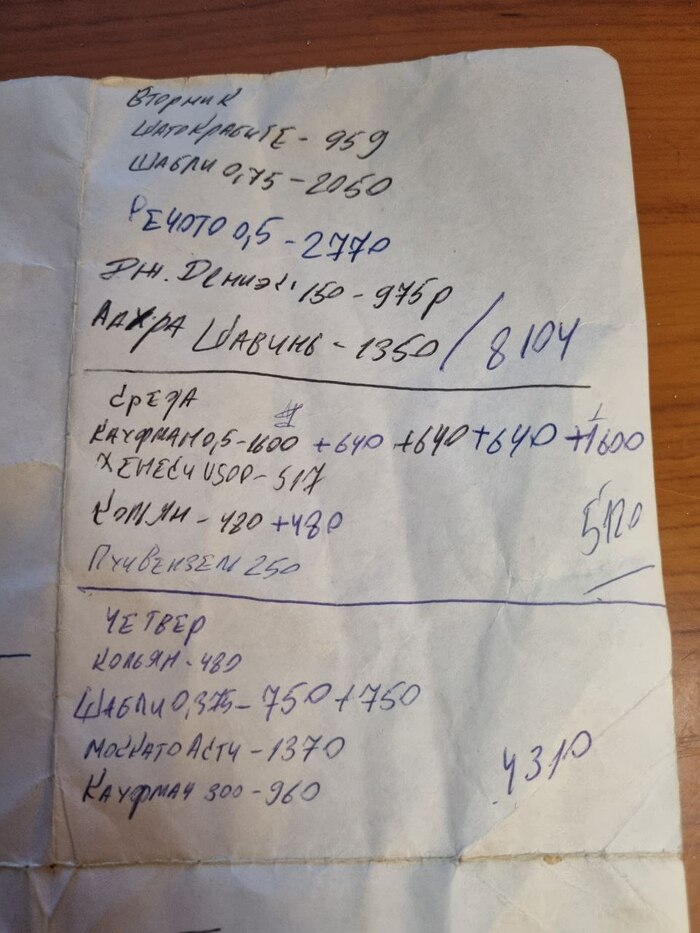 Вторник
Шатокрабите - 959
Шабли 0,75 - 2050
Речото 0,5 - 2770
Дж. Дениэлс 150 - 975р
Шавинь - 1350 / 8104
Среда
Кауфман 0,5 - 1600 +640 +640 +640 +1600
Хенеси - 517
Кольян - 480 +480
5120
250
Четвер
Кольян - 480
Шабли 0,375 - 750 + 750
Москато Асти - 1370
4310
Кауфман 300 - 960